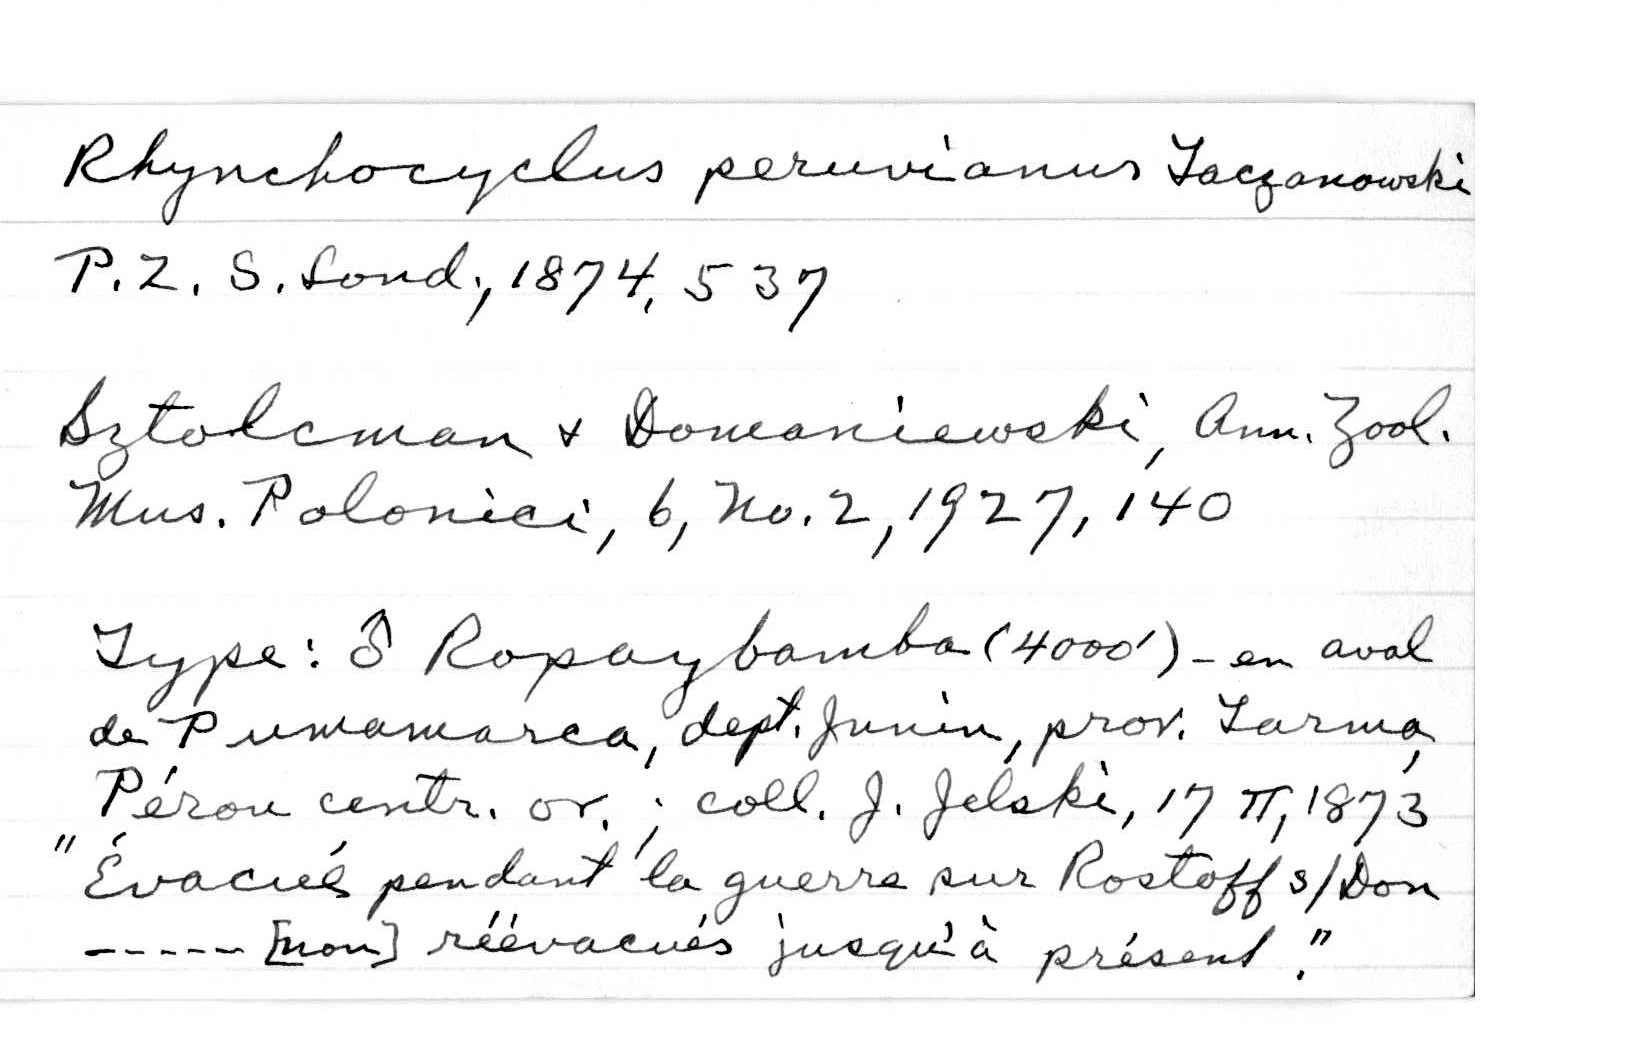 Rhynchocyclus peruvianus Taczanowski
P. Z. S. Lond., 1874, 537
Sztolcman & Domaniewski, Ann. Zool.
Mus. Polonici, 6, No. 2, 1927, 140
Type: ♂ Ropaybamba (4000') - en aval
de Pumamarca, dept. Junin, prov. Tarma,
Pérou centr. or.; coll. J. Jelski, 17 II, 1873
"Évacués pendant la guerre sur Rostoff s/Don
----- [non] réévacués jusqu'à présent."